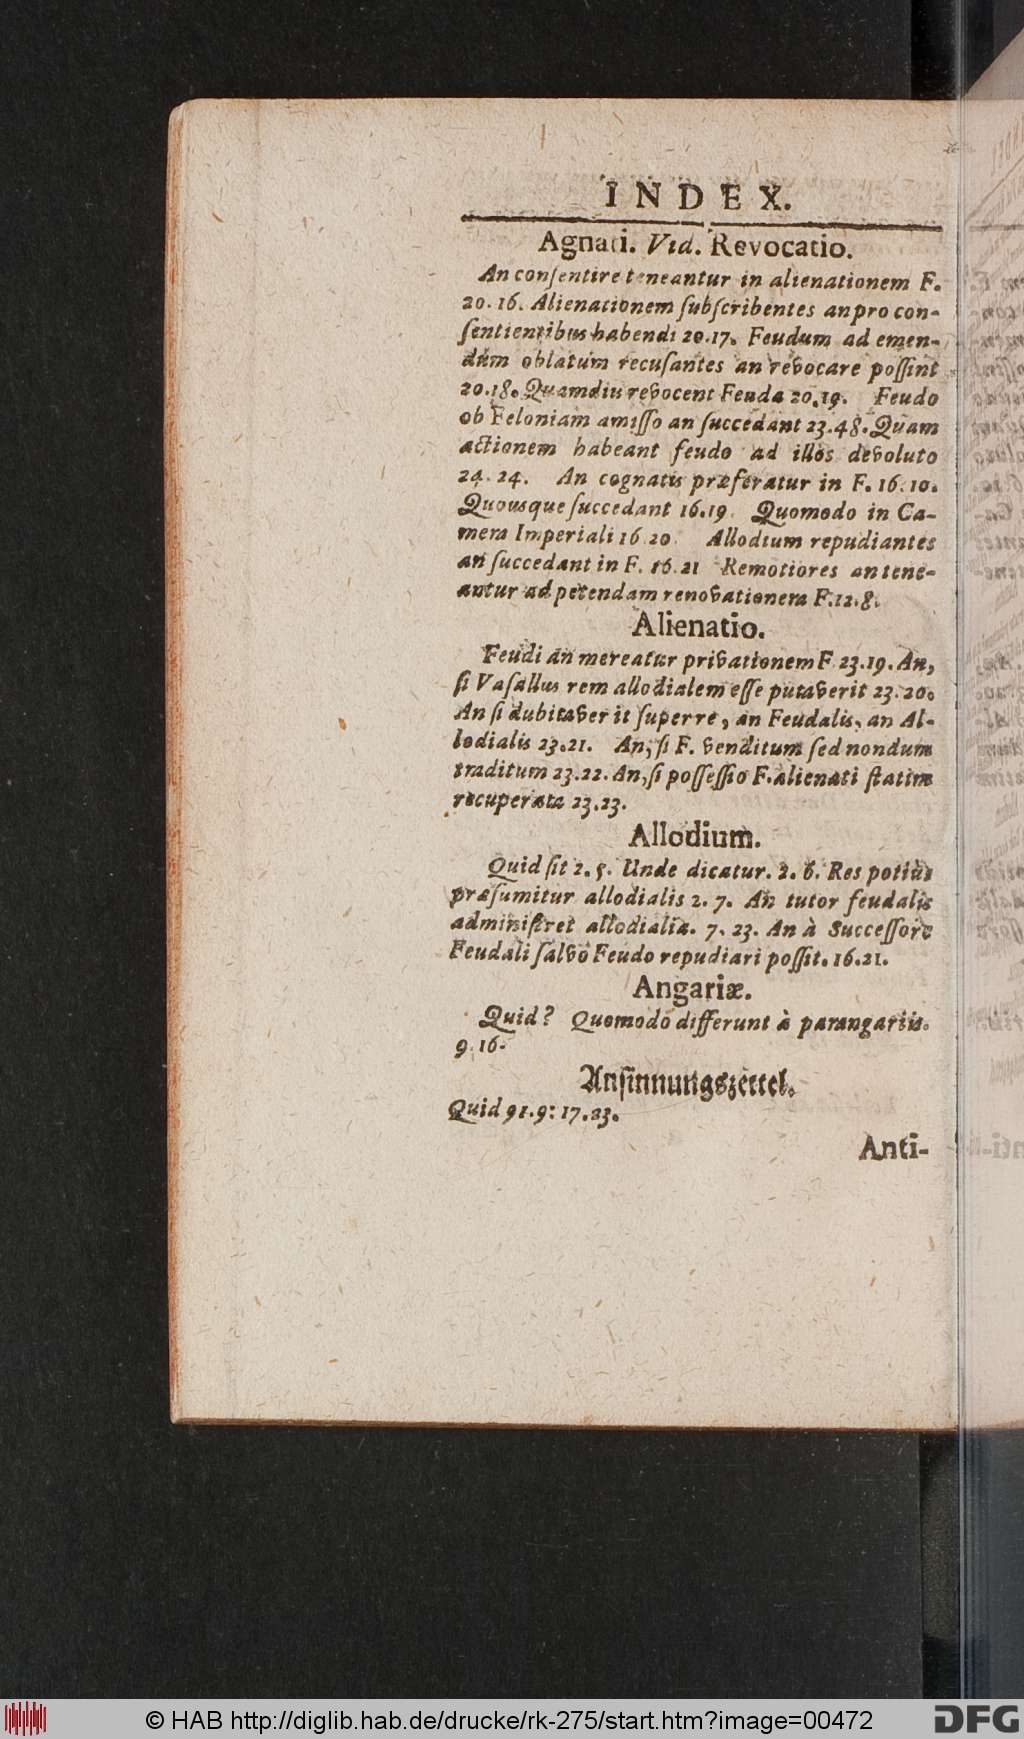 INDEX.
Agnati. Vid. Revocatio.
An conſentire teneantur in alienationem F.
20. 16. Alienationem ſubſcribentes an pro con-
ſentientibus habendi 20. 17. Feudum ad emen-
dúm oblatum recuſantes an revocare poſſint
20. 18. Quamdiu revocent Feuda 20. 19. Feudo
ob Feloniam amiſſo an ſuccedant 23. 48. Quam
actionem habeant feudo ad illos devoluto
24. 24. An cognatis præferatur in F. 16. 10.
Quousque ſuccedant 16. 19. Quomodo in Ca-
mera Imperiali 16 20. Allodium repudiantes
an ſuccedant in F. 16. 21 Remotiores an tene-
antur ad petendam renovationem F. 12. 8.
Alienatio.
Feudi an mereatur privationem F 23. 19. An,
ſi Vaſallus rem allodialem eſſe putaverit 23. 20.
An ſi dubitaverit ſuper re, an Feudalis, an Al-
lodialis 23. 21. An, ſi F. venditum ſed nondum
traditum 23. 22. An, ſi poſſeſſio F. alienati ſtatim
recuperata 23. 23.
Allodium.
Quid ſit 2. 5. Unde dicatur. 2. 6. Res potiùs
præſumitur allodialis 2. 7. An tutor feudalis
adminiſtret allodialia. 7. 23. An à Succeſſore
Feudali ſalvo Feudo repudiari poſſit. 16. 21.
Angariæ.
Quid? Quomodo differunt à parangariis.
9. 16.
Anſinnungszettel.
Quid 91. 9: 17. 23.
Anti-
© HAB http://diglib.hab.de/drucke/rk-275/start.htm?image=00472
DFG